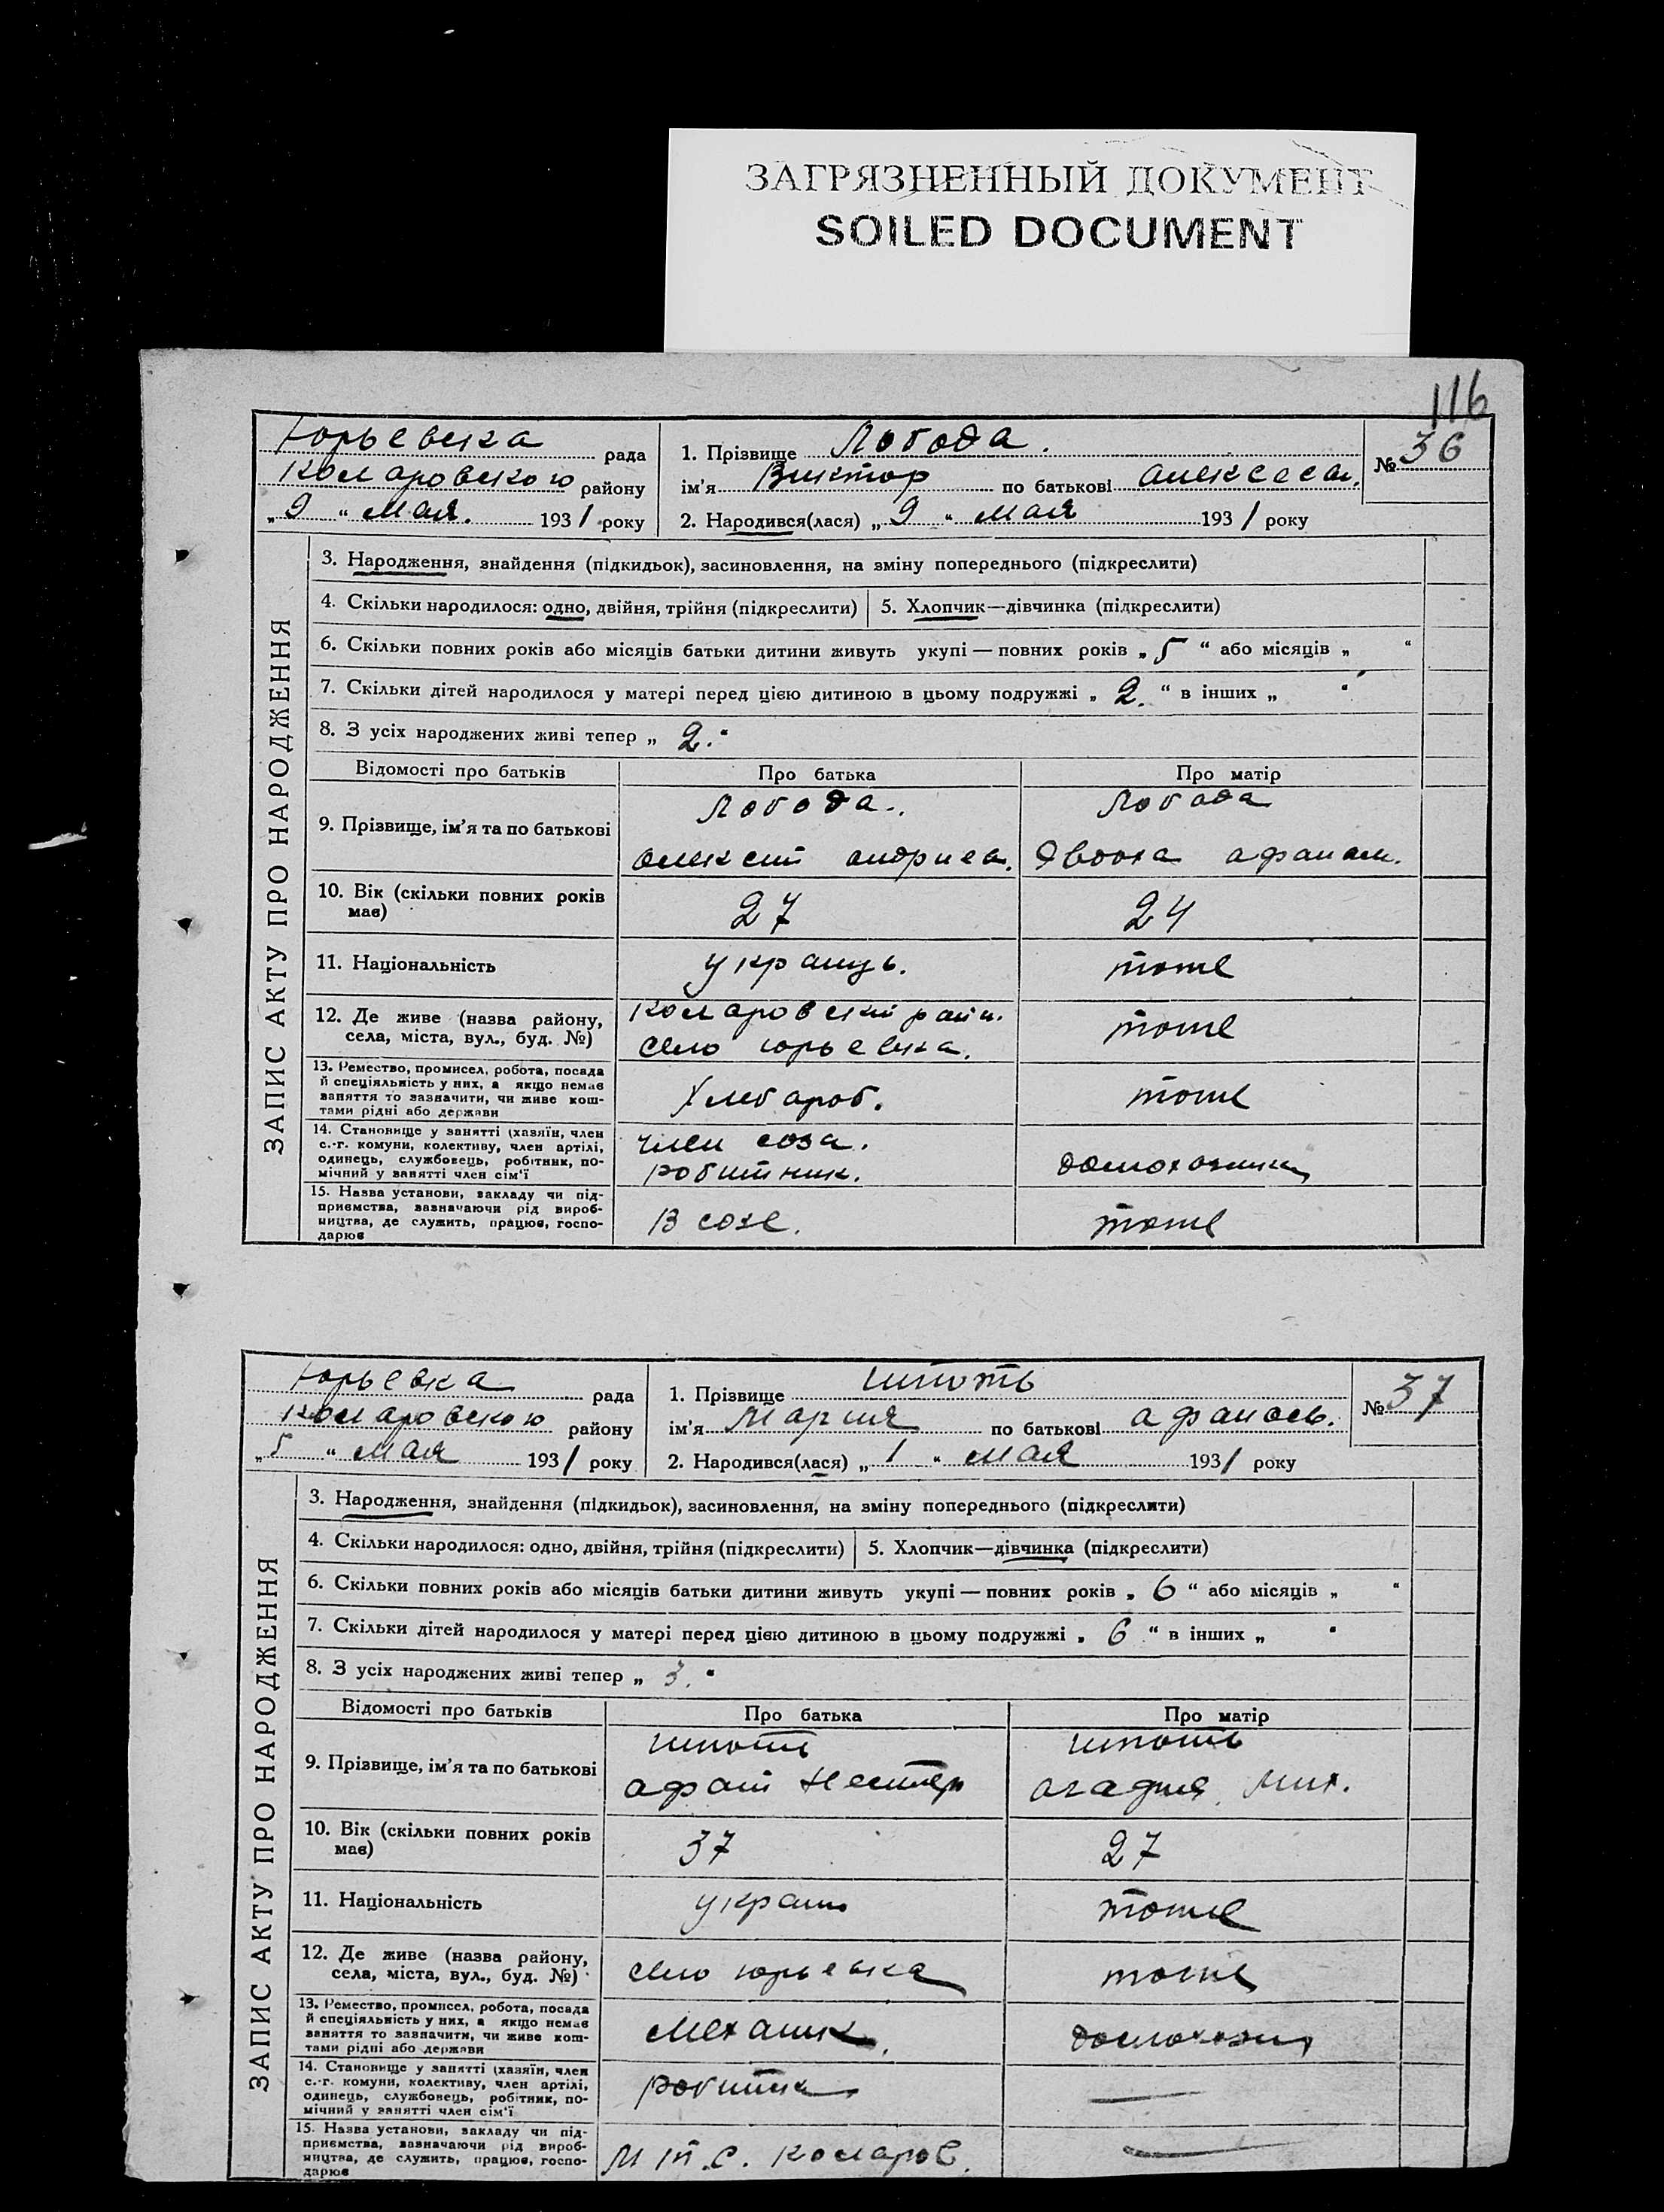 ЗАГРЯЗНЕННЫЙ ДОКУМЕНТ
SOILED DOCUMENT
116
Юрьевска рада
Комаровского району
„9“ мая. 1931 року
1. Прізвище Лобода.
ім'я Виктор по батькові алексеев.
2. Народився(лася) „9“ мая 1931 року
№ 36
ЗАПИС АКТУ ПРО НАРОДЖЕННЯ
3. Народження, знайдення (підкидьок), засиновлення, на зміну попереднього (підкреслити)
4. Скільки народилося: одно, двійня, трійня (підкреслити) 5. Хлопчик—дівчинка (підкреслити)
6. Скільки повних років або місяців батьки дитини живуть укупі — повних років „5“ або місяців „ “
7. Скільки дітей народилося у матері перед цією дитиною в цьому подружжі „2.“ в інших „ “
8. З усіх народжених живі тепер „2.“
Відомості про батьків Про батька Про матір
9. Прізвище, ім'я та по батькові
Лобода. Лобода
алексей андреев. Явдоха афанас.
10. Вік (скільки повних років має) 27 24
11. Національність украинць. тоже
12. Де живе (назва району, села, міста, вул., буд. №)
Комаровский райн. тоже
село юрьевка.
13. Ремество, промисел, робота, посада
й спеціяльність у них, а якщо немає
заняття то зазначити, чи живе кош-
тами рідні або держави
Хлебароб. тоже
14. Становище у занятті (хазяїн, член
с.-г. комуни, колективу, член артілі,
одинець, службовець, робітник, по-
мічний у занятті член сім'ї
член соза.
робитник. домохазяйка
15. Назва установи, закладу чи під-
приємства, зазначаючи рід вироб-
ництва, де служить, працює, госпо-
дарює
В созе. тоже
Юрьевка рада
Комаровского району
„5“ мая 1931 року
1. Прізвище Шпоть
ім'я Мария по батькові афанось.
2. Народився(лася) „1“ мая 1931 року
№ 37
ЗАПИС АКТУ ПРО НАРОДЖЕННЯ
3. Народження, знайдення (підкидьок), засиновлення, на зміну попереднього (підкреслити)
4. Скільки народилося: одно, двійня, трійня (підкреслити) 5. Хлопчик—дівчинка (підкреслити)
6. Скільки повних років або місяців батьки дитини живуть укупі — повних років „6“ або місяців „ “
7. Скільки дітей народилося у матері перед цією дитиною в цьому подружжі „6“ в інших „ “
8. З усіх народжених живі тепер „3.“
Відомості про батьків Про батька Про матір
9. Прізвище, ім'я та по батькові
Шпоть Шпоть
Нестер Мих.
10. Вік (скільки повних років має) 37 27
11. Національність украин тоже
12. Де живе (назва району, села, міста, вул., буд. №)
село юрьевка тоже
13. Ремество, промисел, робота, посада
й спеціяльність у них, а якщо немає
заняття то зазначити, чи живе кош-
тами рідні або держави
механик. домохозяй
14. Становище у занятті (хазяїн, член
с.-г. комуни, колективу, член артілі,
одинець, службовець, робітник, по-
мічний у занятті член сім'ї
робитник —
15. Назва установи, закладу чи під-
приємства, зазначаючи рід вироб-
ництва, де служить, працює, госпо-
дарює
М.т.с. комаров. —